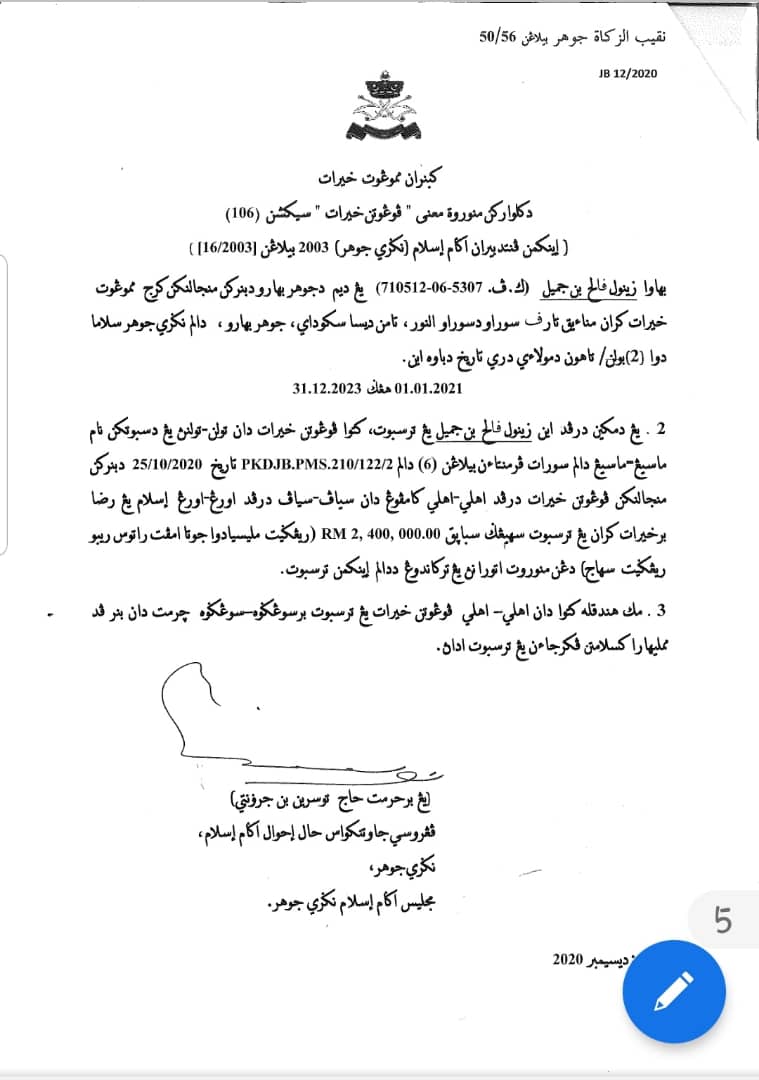 نقيب الزكاة جوهر بيلاڠن 50/56
JB 12/2020
كبنران مموڠوت خيرات
دكلواركن منوروة معنى " ڤوڠوتن خيرات " سيكشن (106)
( اينكمن ڤنتدبيران اݢام إسلام (نݢري جوهر) 2003 بيلاڠن [16/2003] )
بهاوا زينول فالح بن جميل (ك.ڤ. 5307-06-710512) يڠ ديم دجوهر بهارو دبنركن منجالنكن كرج مموڠوت
خيرات كران مناءيق تارف سوراو دسوراو النور، تامن ديسا سكوداي، جوهر بهارو، دالم نݢري جوهر سلاما
دوا (2)بولن/ تاهون دمولاءي دري تاريخ دباوه اين.
01.01.2021 هڠݢ 31.12.2023
2 . يڠ دمكين درڤد اين زينول فالح بن جميل يڠ ترسبوت، كتوا ڤوڠوتن خيرات دان تولن-تولنڽ يڠ دسبوتكن نام
ماسيڠ-ماسيڠ دالم سورات ڤرمنتاءن بيلاڠن (6) دالم PKDJB.PMS.210/122/2 تاريخ 25/10/2020 دبنركن
منجالنكن ڤوڠوتن خيرات درڤد اهلي-اهلي كامڤوڠ دان سياڤ-سياڤ درڤد اورڠ-اورڠ إسلام يڠ رضا
برخيرات كران يڠ ترسبوت سهيڠݢ سباڽق RM 2, 400, 000.00 (ريڠݢيت مليسيادوا جوتا امڤت راتوس ريبو
ريڠݢيت سهاج) دڠن منوروت اتورا نڽ يڠ تركاندوڠ ددالم إينكمن ترسبوت.
3 . مك هندقله كتوا دان اهلي- اهلي ڤوڠوتن خيرات يڠ ترسبوت برسوڠݢوه-سوڠݢوه چرمت دان بنر ڤد
ممليهارا كسلامتن ڤكرجاءن يڠ ترسبوت ادان.
(يڠ برحرمت حاج توسرين بن جرڤنتي)
ڤڠروسي جاوتنكواس حال إحوال اݢام إسلام،
نݢري جوهر،
مجليس اݢام إسلام نݢري جوهر.
ديسيمبر 2020
5